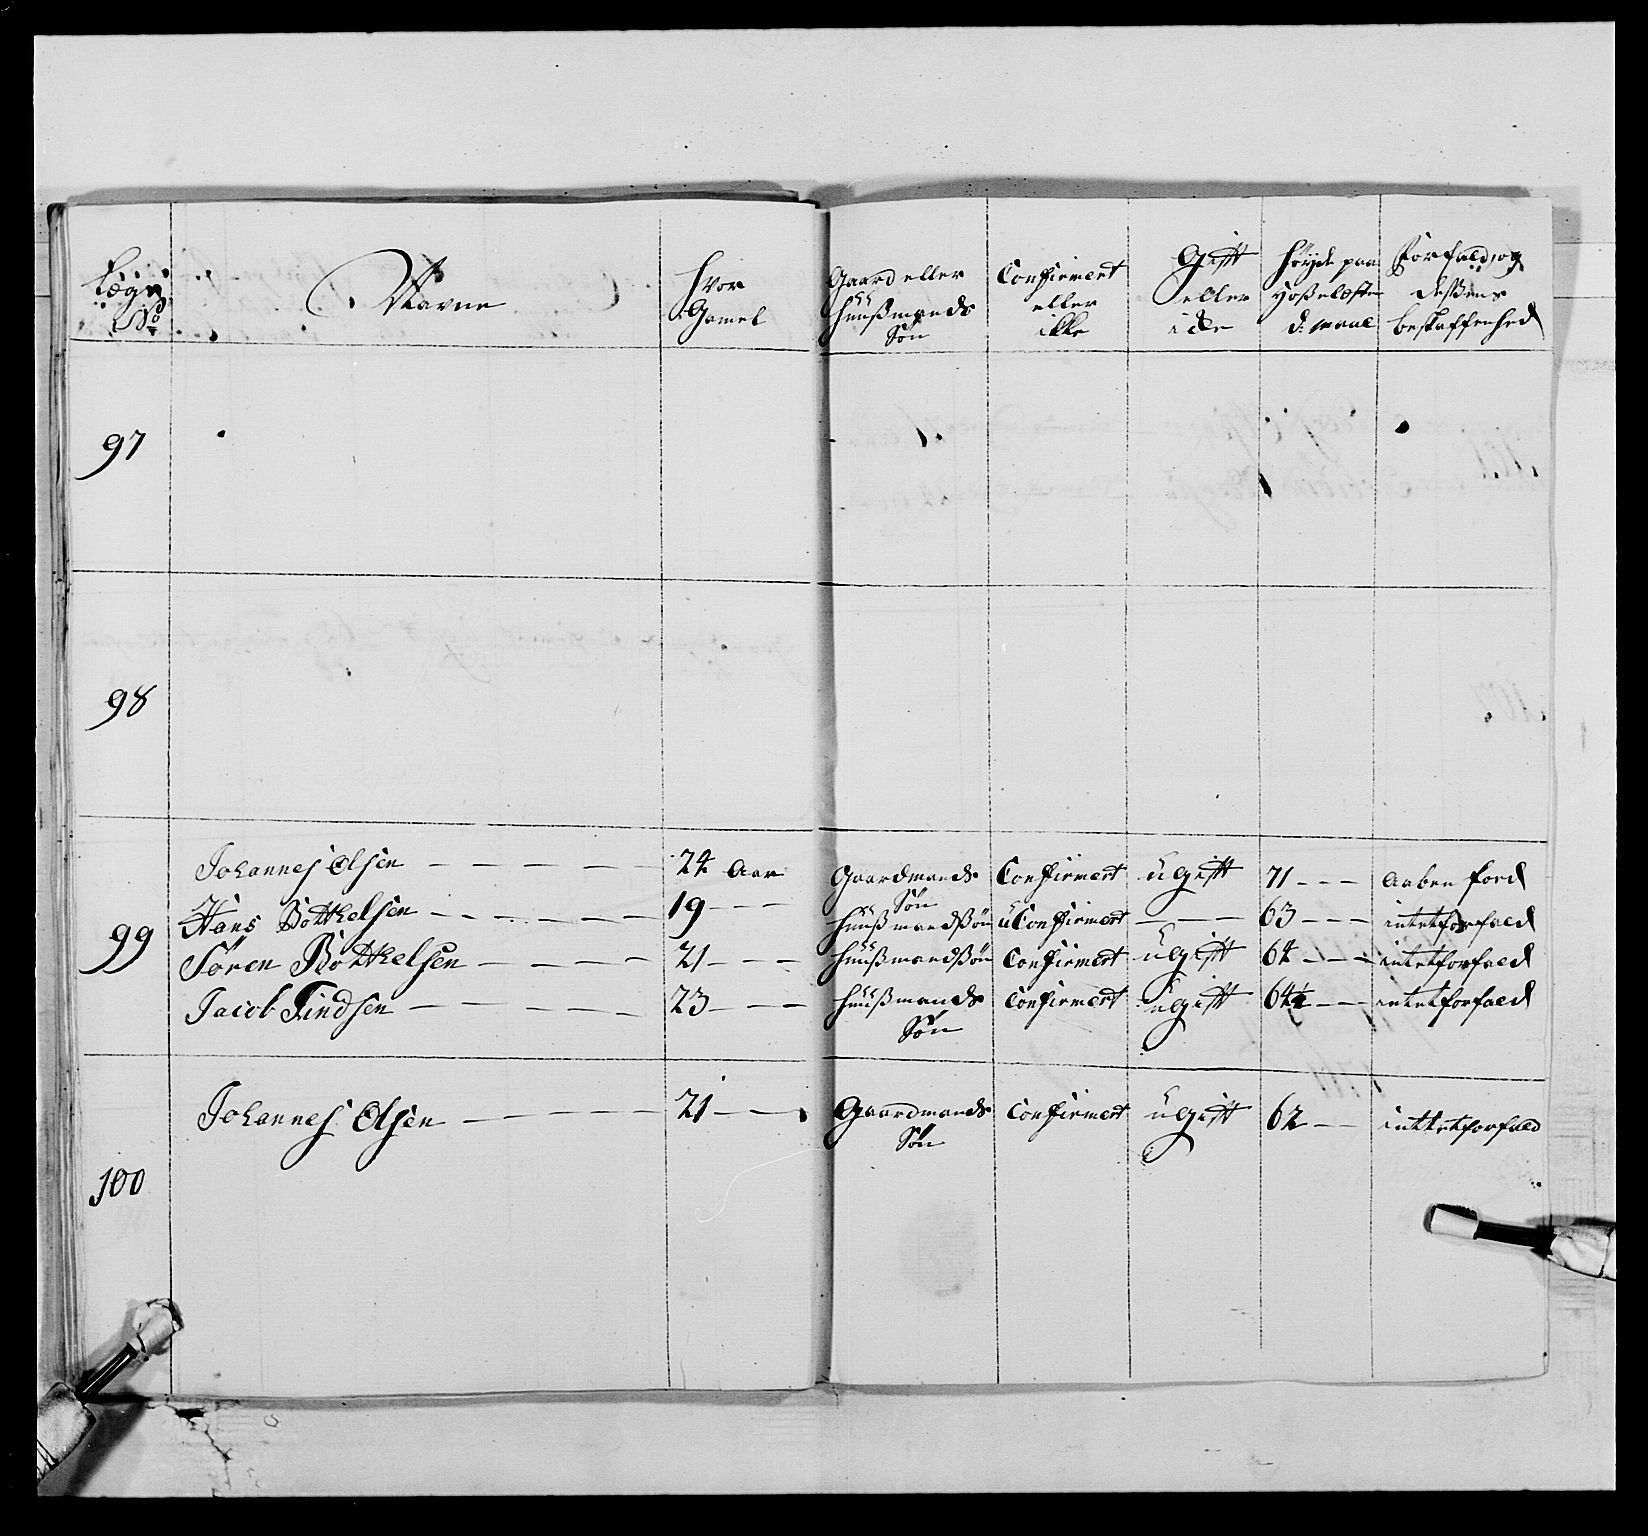 Lægs No | Navne | hvor Gamel | Gaard eller huusmands Søn | Confirmert eller ikke | Gift eller icke | høyde paa d: maal | Forfald, og deßens beskaffenhed
97
98
99
Johannes Olsen — — — — 24 Aar | Gaardmands Søn | Confirmert | ugift | 71 - - - | Aaben ford
Hans Bottelsen — — — — 19 - - - | huußmandßøn | uConfirmert | — — — | 63 - - - | intetforfald
Søren Bottelsen — — — — 21 - - - | huußmandßøn | Confirmert | ugift | 64 - - - | intetforfald
Jacob Findsen — — — — 23 - - - | huußmands Søn | Confirmert | ugift | 64½ - - | intetforfald
100
Johannes Olsen — — — — 21 - - - | Gaardmands Søn | Confirmert | ugift | 62 - - | inttetforfald